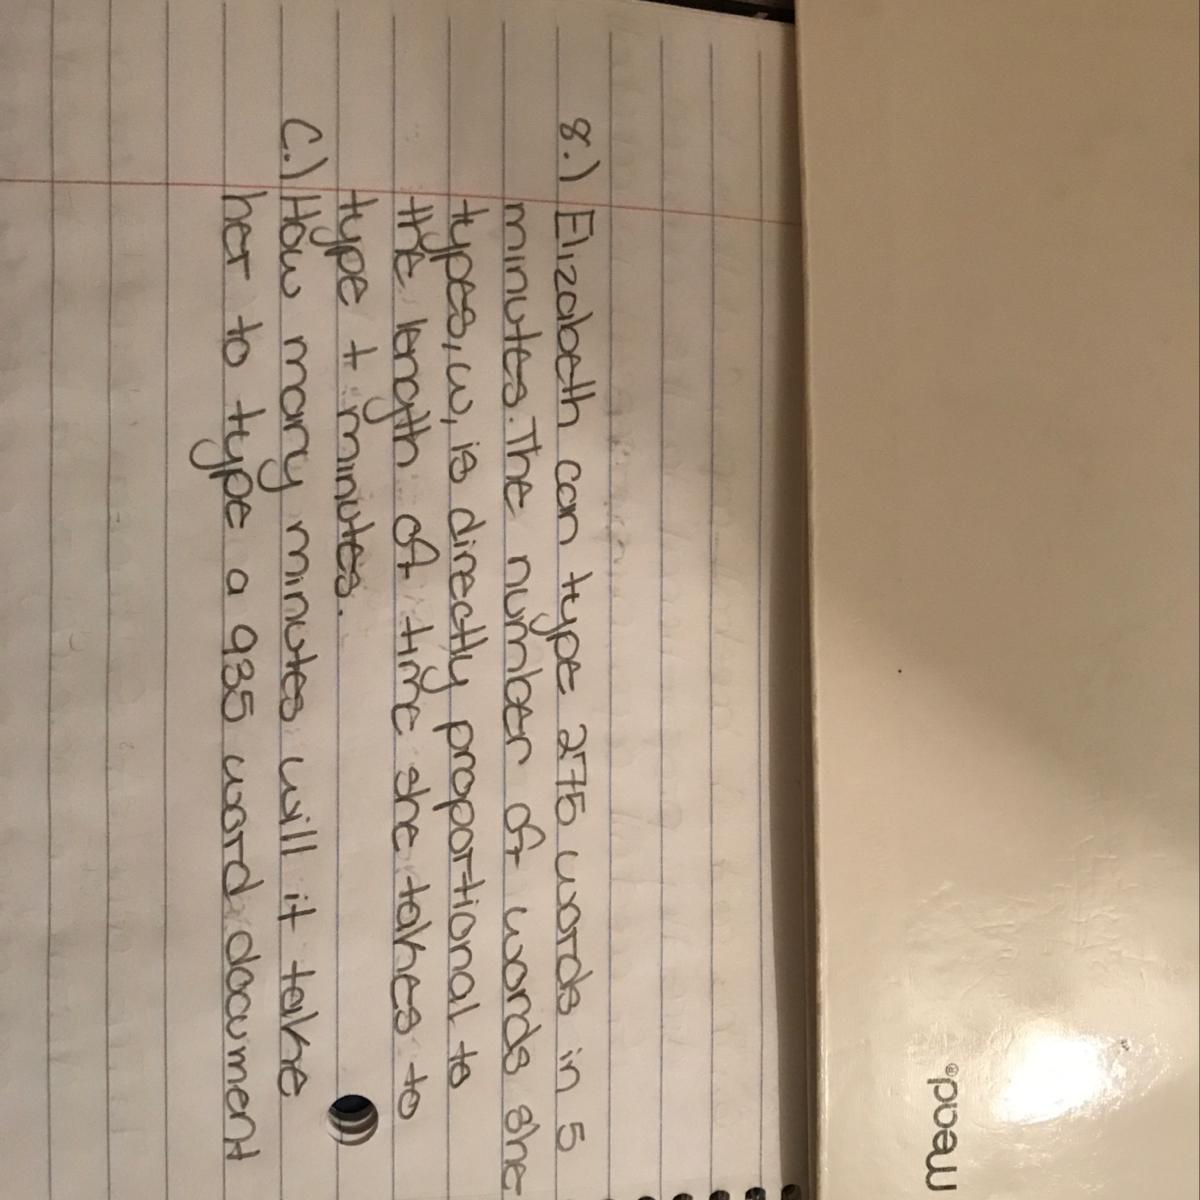 mead®
8.) Elizabeth can type 275 words in 5
minutes. The number of words she
types, w, is directly proportional to
the length of time she takes to
type t minutes.
C.) How many minutes will it take
her to type a 935 word document